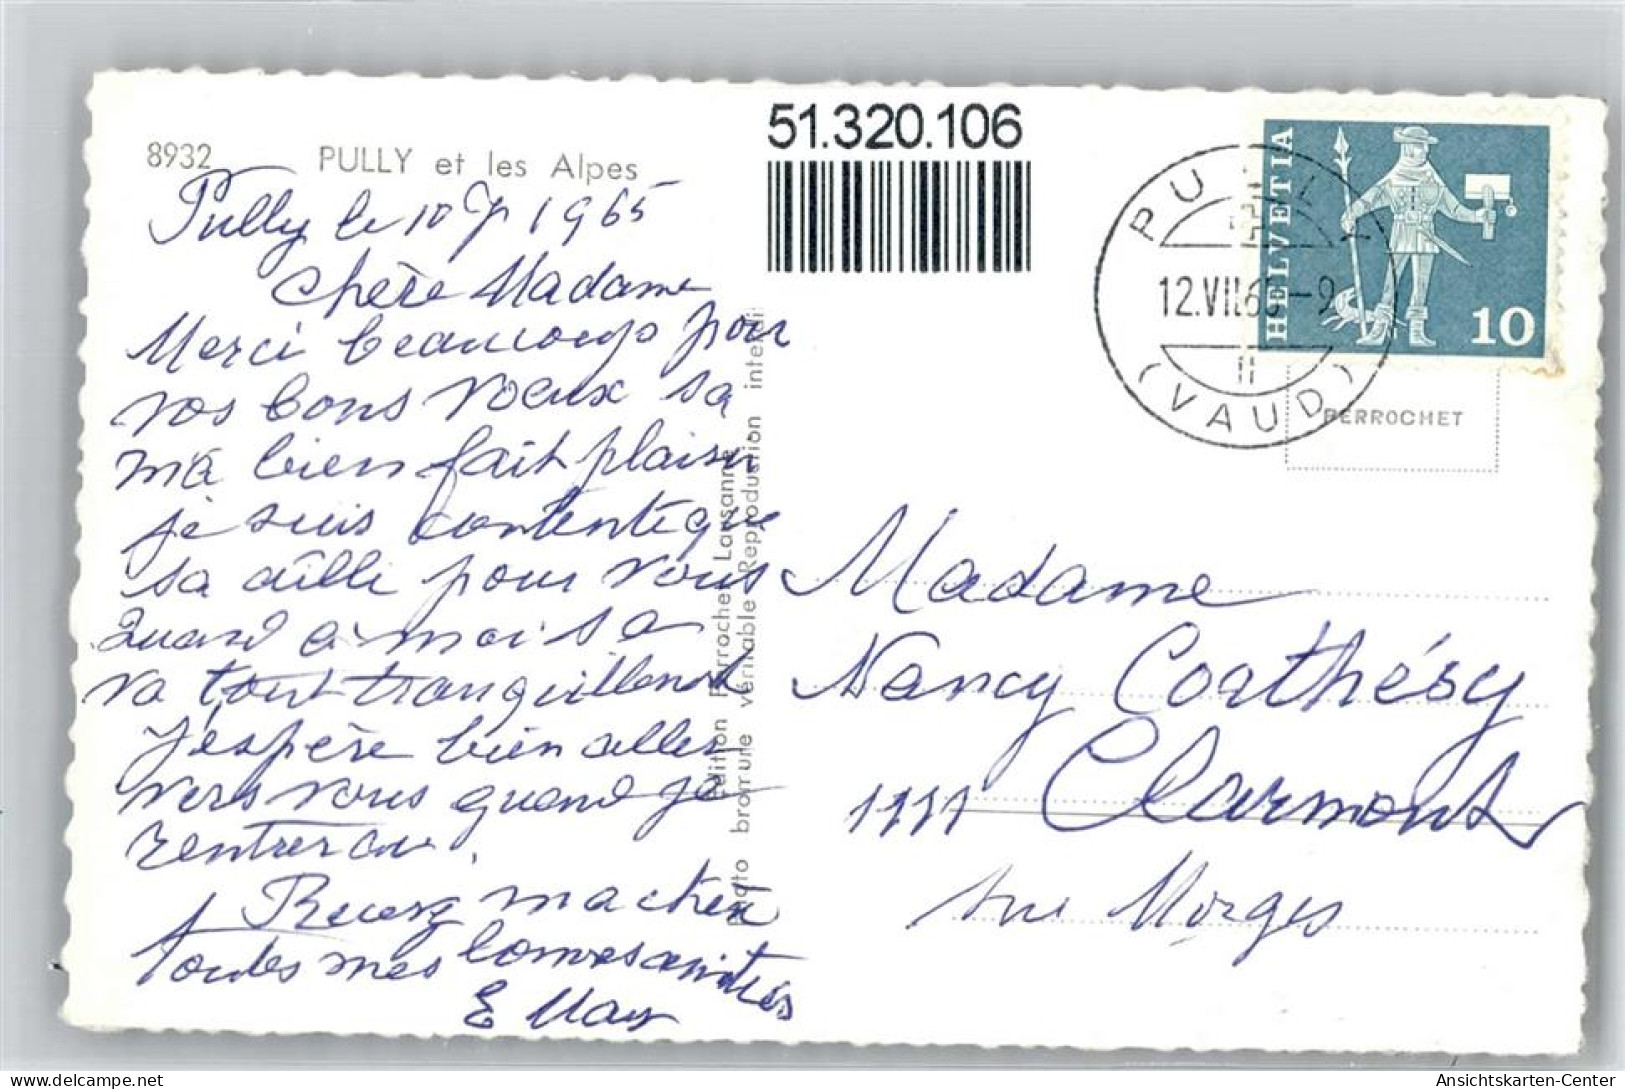 51.320.106
8932 PULLY et les Alpes
Pully le 10 7 1965
Chère Madame
Merci beaucoups pour
vos bons voeux sa
ma bien fait plaisir
je suis contente que
sa aille pour vous
Quand a moi sa
va tout tranquillement
J'espère bien aller
vers vous quand je
rentrerai.
Recevez ma chère
toutes mes bonnes amitiés
E May
Edition Perrochet Lausanne
Photo bromure véritable Reproduction interdit
PULLY
12.VII.65-9
(VAUD)
HELVETIA
10
PERROCHET
Madame
Nancy Coathésy
1111 Clarmont
sur Morges
Ansichtskarten-Center